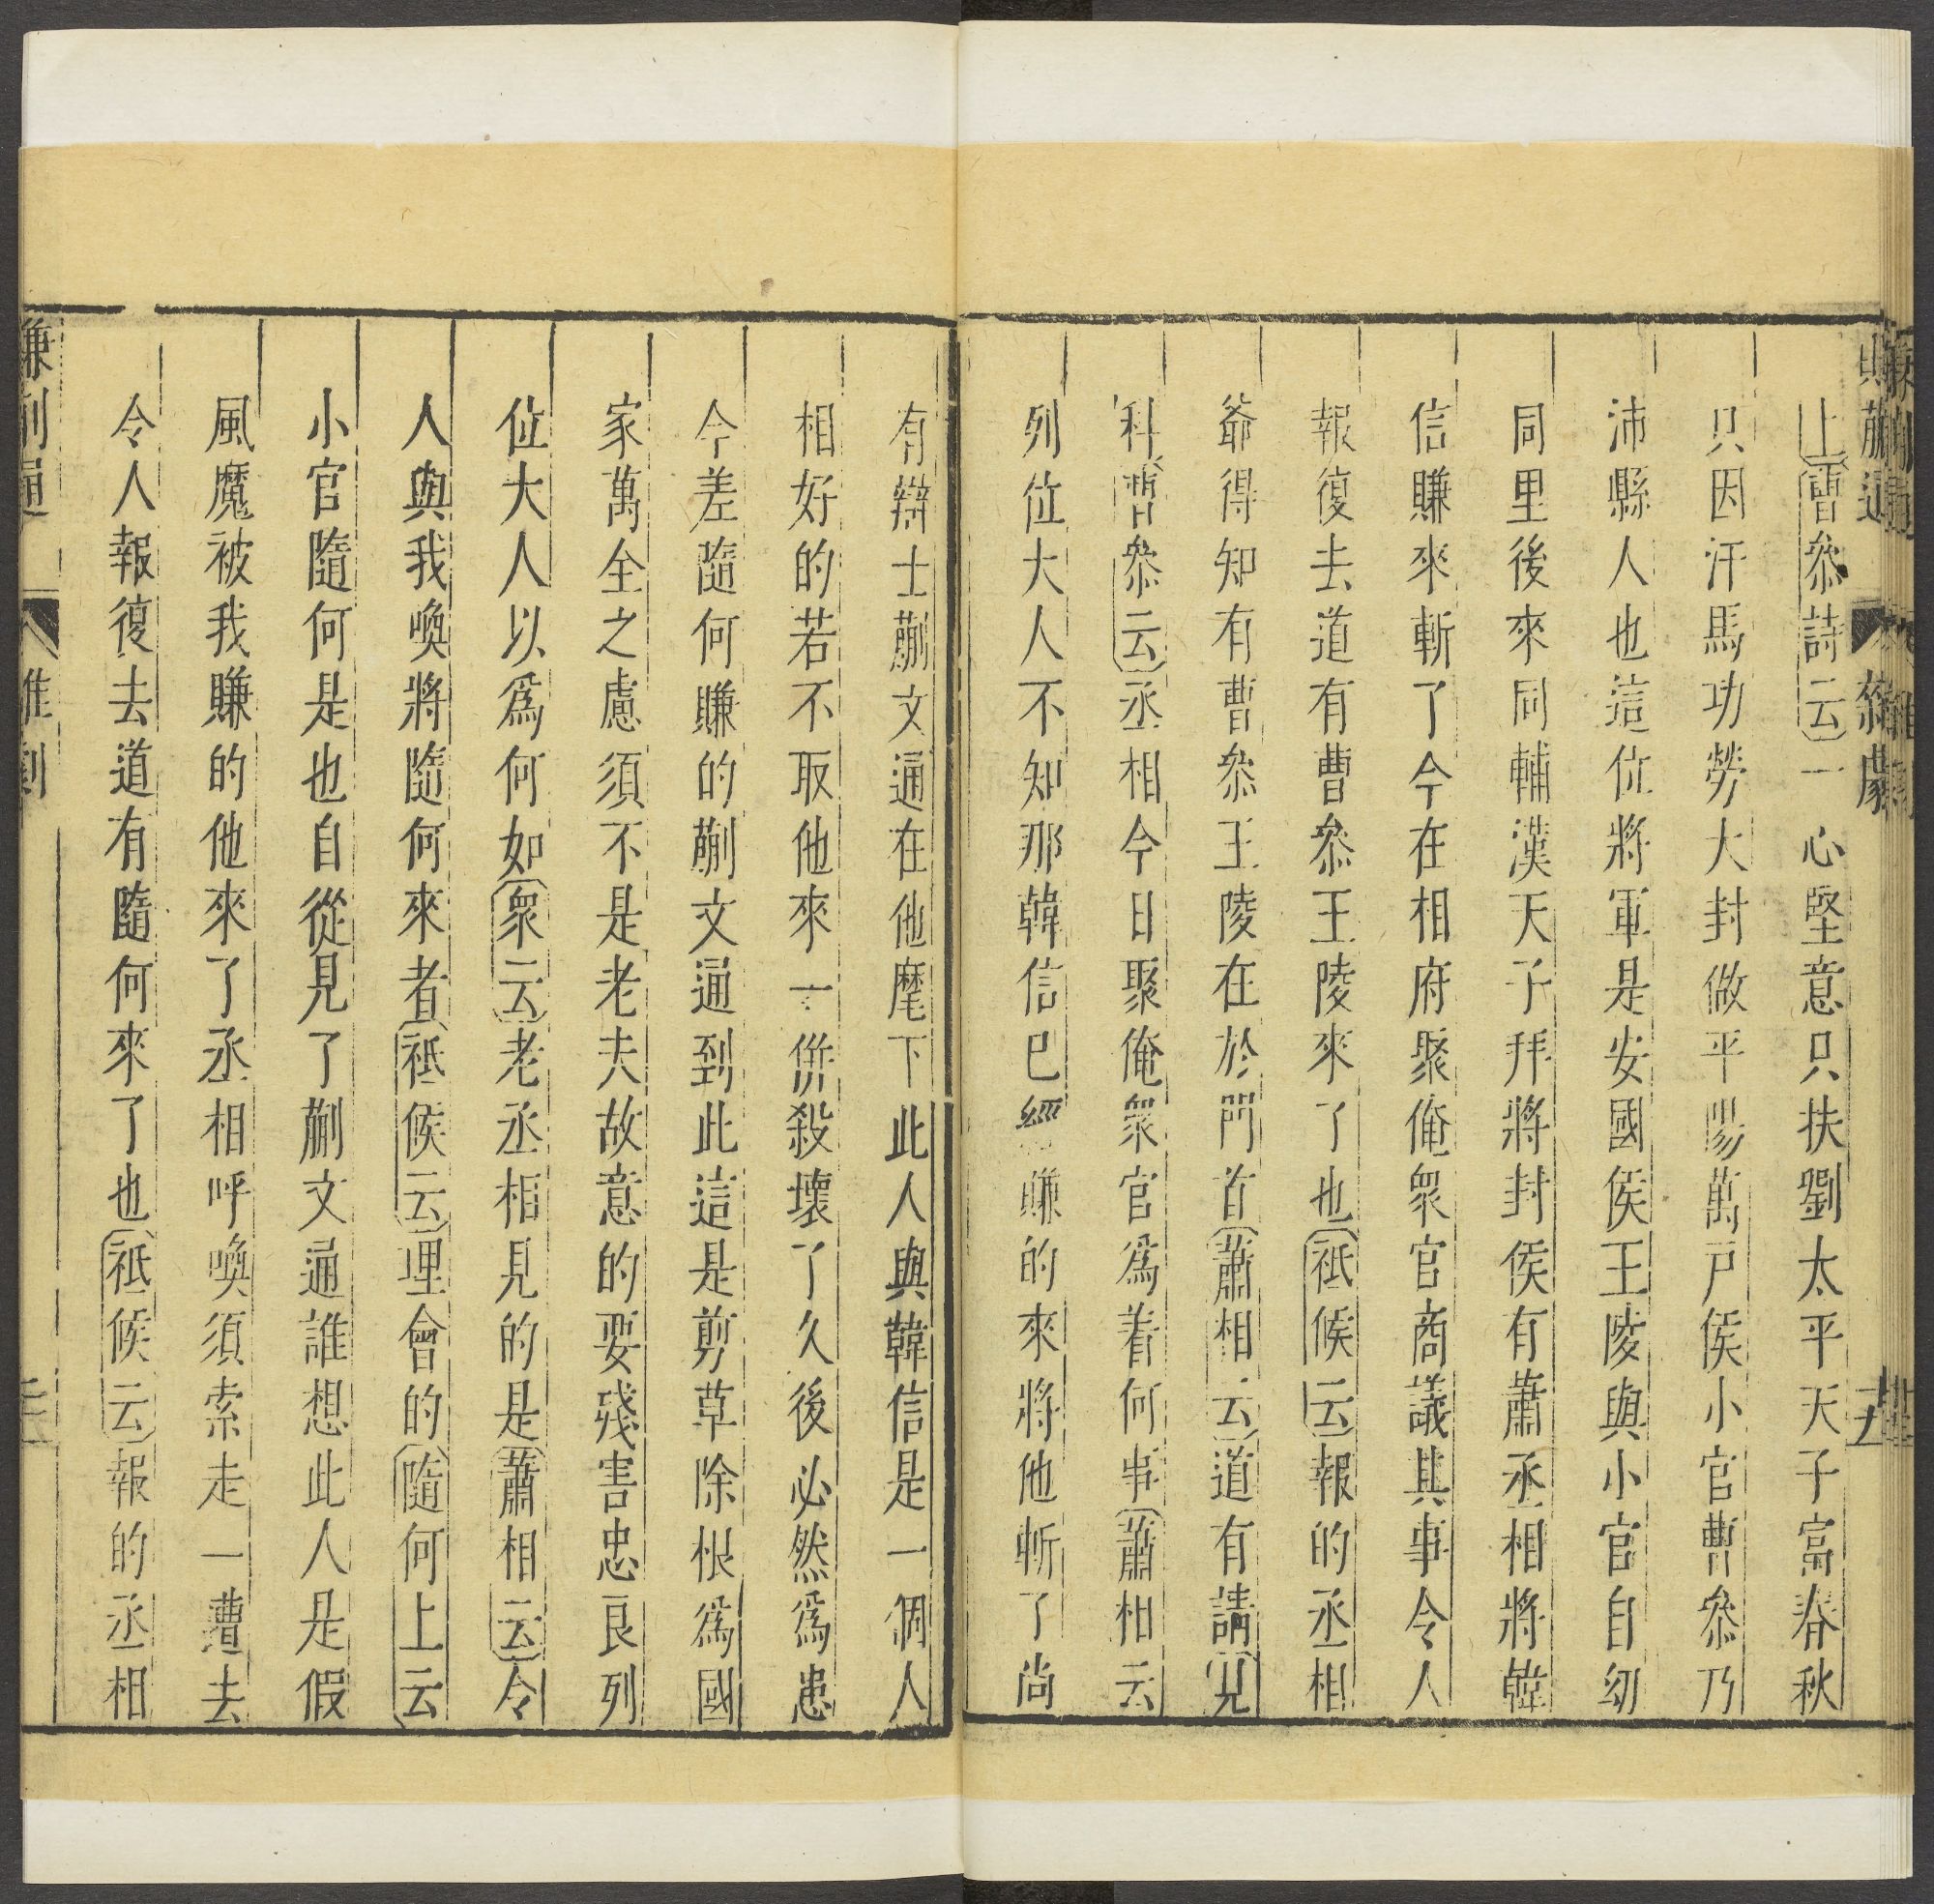 上曹叅詩云一心堅意只扶劉太平天子富春秋
只因汗馬功勞大封做平陽萬戸侯小官曹叅乃
沛縣人也這位將軍是安國侯王陵與小官自幼
同里後來同輔漢天子拜將封侯有蕭丞相將韓
信賺來斬了今在相府聚俺衆官商議其事令人
報復去道有曹叅王陵來了也祗候云報的丞相
爺得知有曹叅王陵在於門首蕭相云道有請見
科曹叅云丞相今日聚俺衆官爲着何事蕭相云
列位大人不知那韓信已經賺的來將他斬了尚
有辯士蒯文通在他麾下此人與韓信是一個人
相好的若不取他來一併殺壞了久後必然爲患
今差隨何賺的蒯文通到此這是剪草除根爲國
家萬全之慮須不是老夫故意的要殘害忠良列
位大人以爲何如衆云老丞相見的是蕭相云令
人與我喚將隨何來者祗候云理會的隨何上云
小官隨何是也自從見了蒯文通誰想此人是假
風魔被我賺的他來了丞相呼喚須索走一遭去
令人報復去道有隨何來了也祗候云報的丞相
賺蒯通
雜劇